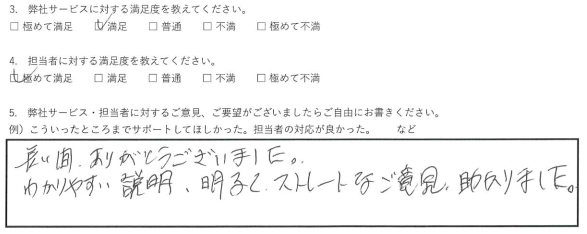 3. 弊社サービスに対する満足度を教えてください。
□ 極めて満足 ☑ 満足 □ 普通 □ 不満 □ 極めて不満
4. 担当者に対する満足度を教えてください。
☑ 極めて満足 □ 満足 □ 普通 □ 不満 □ 極めて不満
5. 弊社サービス・担当者に対するご意見、ご要望がございましたらご自由にお書きください。
例）こういったところまでサポートしてほしかった。担当者の対応が良かった。 など
長い間、ありがとうございました。
わかりやすい説明、明るく、ストレートなご意見、助かりました。